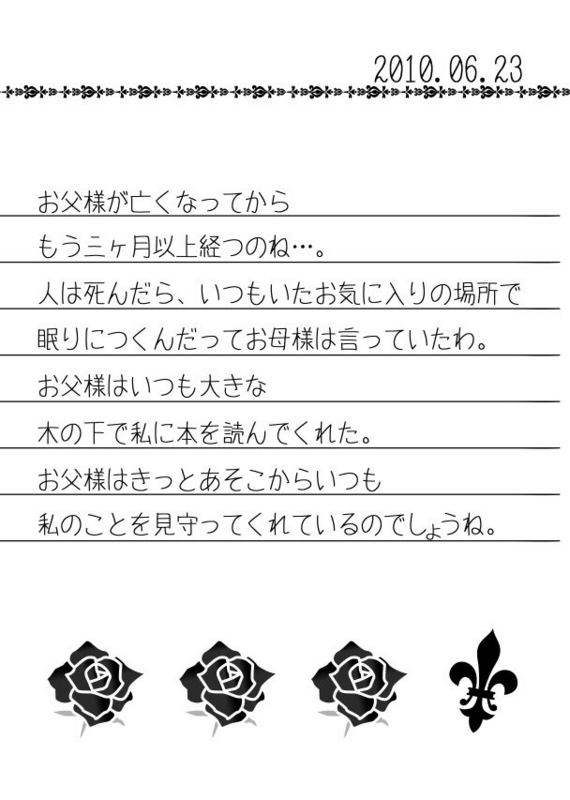 2010.06.23
お父様が亡くなってから
もう三ヶ月以上経つのね…。
人は死んだら、いつもいたお気に入りの場所で
眠りにつくんだってお母様は言っていたわ。
お父様はいつも大きな
木の下で私に本を読んでくれた。
お父様はきっとあそこからいつも
私のことを見守ってくれているのでしょうね。